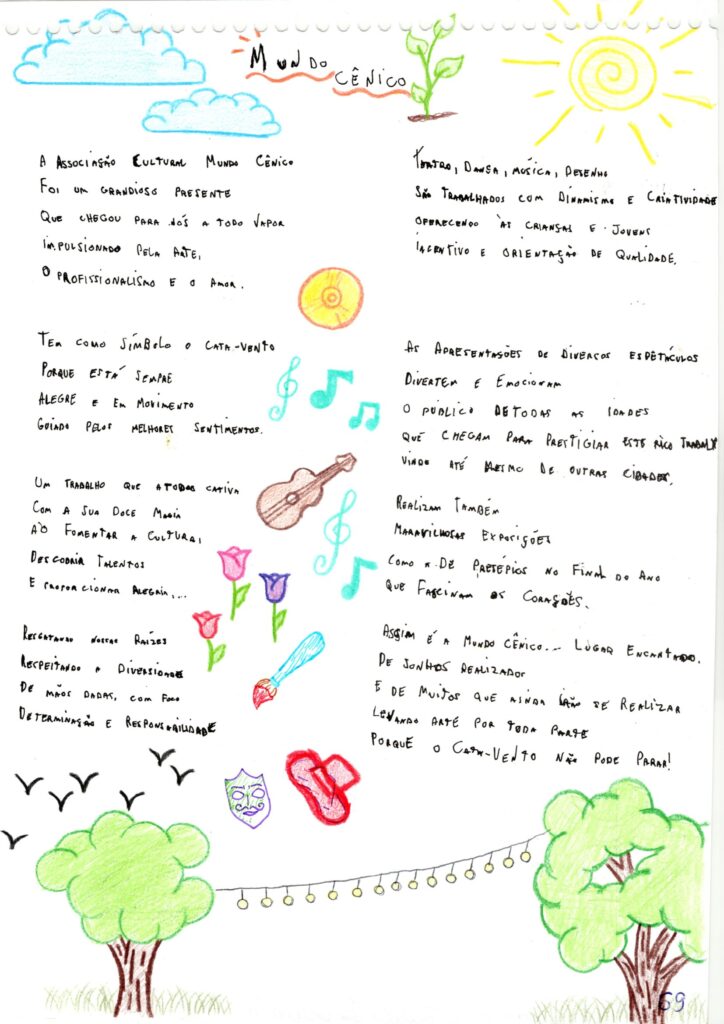 Mundo
Cênico
A Associação Cultural Mundo Cênico
Foi um grandioso presente
Que chegou para nós a todo vapor
Impulsionado pela arte,
O profissionalismo e o amor.
Tem como símbolo o cata-vento
Porque está sempre
Alegre e em movimento
Guiado pelos melhores sentimentos.
Um trabalho que a todos cativa
Com a sua doce magia
Ao fomentar a cultura,
Descobrir talentos
E proporcionar alegria,...
Resgatando nossas raízes
Respeitando a diversidade
De mãos dadas, com foco
Determinação e responsabilidade
Teatro, dansa, música, desenho
São trabalhados com dinamismo e criatividade
Oferecendo às crianças e jovens
Incentivo e orientação de qualidade.
As apresentações de diversos espetáculos
Divertem e emocionam
O público de todas as idades
Que chegam para prestigiar este rico trabalho
Vindo até mesmo de outras cidades.
Realizam também
Maravilhosas exposições
Como a de presépios no final do ano
Que fascinam os corações.
Assim é a Mundo Cênico... lugar encantado.
De sonhos realizados
E de muitos que ainda irão se realizar
Levando arte por toda parte
Porque o cata-vento não pode parar!
69